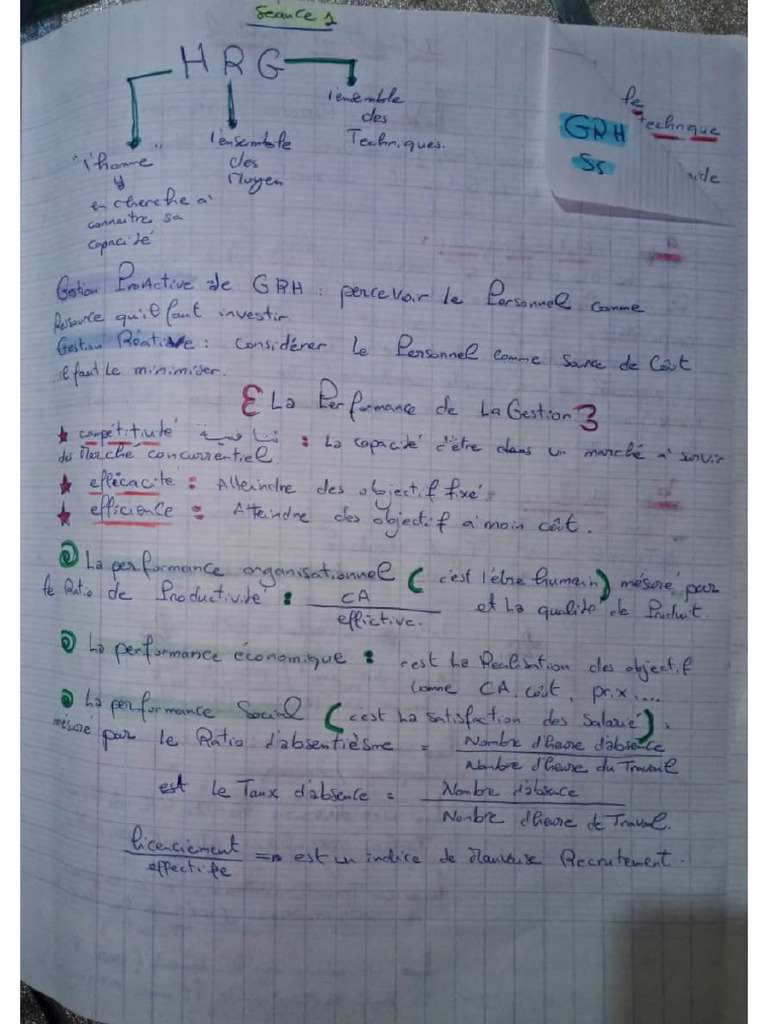 Séance 1
H R G
"l'homme"
en cherche a'
connaitre sa
capacité
l'ensemble
des
Moyen
l'ensemble
des
Techniques.
GRH
S5
le
technique
Gestion ProActive de GRH : percevoir le Personnel comme
Ressource qu'il faut investir.
Gestion Réative : Considérer le Personnel comme Source de Coût
il faut Le minimiser.
La Performance de La Gestion
★ compétitivité تنافسية : La capacité d'être dans un marché a' survir
des Marché concurrentiel.
★ efficacité : Atteindre des objectif fixé
★ efficience : Atteindre des objectif a' moin coût.
La performance organisationnel ( c'est l'être humain) mésuré par
le Ratio de Productivité : CA / effictive. et La qualité de Produit.
La performance économique : c'est La Réalisation des objectif
comme CA, coût, prix....
La performance Social ( c'est La satisfaction des Salarié ).
mésuré par le Ratio d'absentièsme = Nombre d'heure d'absence / Nombre d'heure du Travail
est le Taux d'absence = Nombre d'absence / Nombre d'heure de Travail.
licenciement / effectife => est un indice de Mauvaise Recrutement.